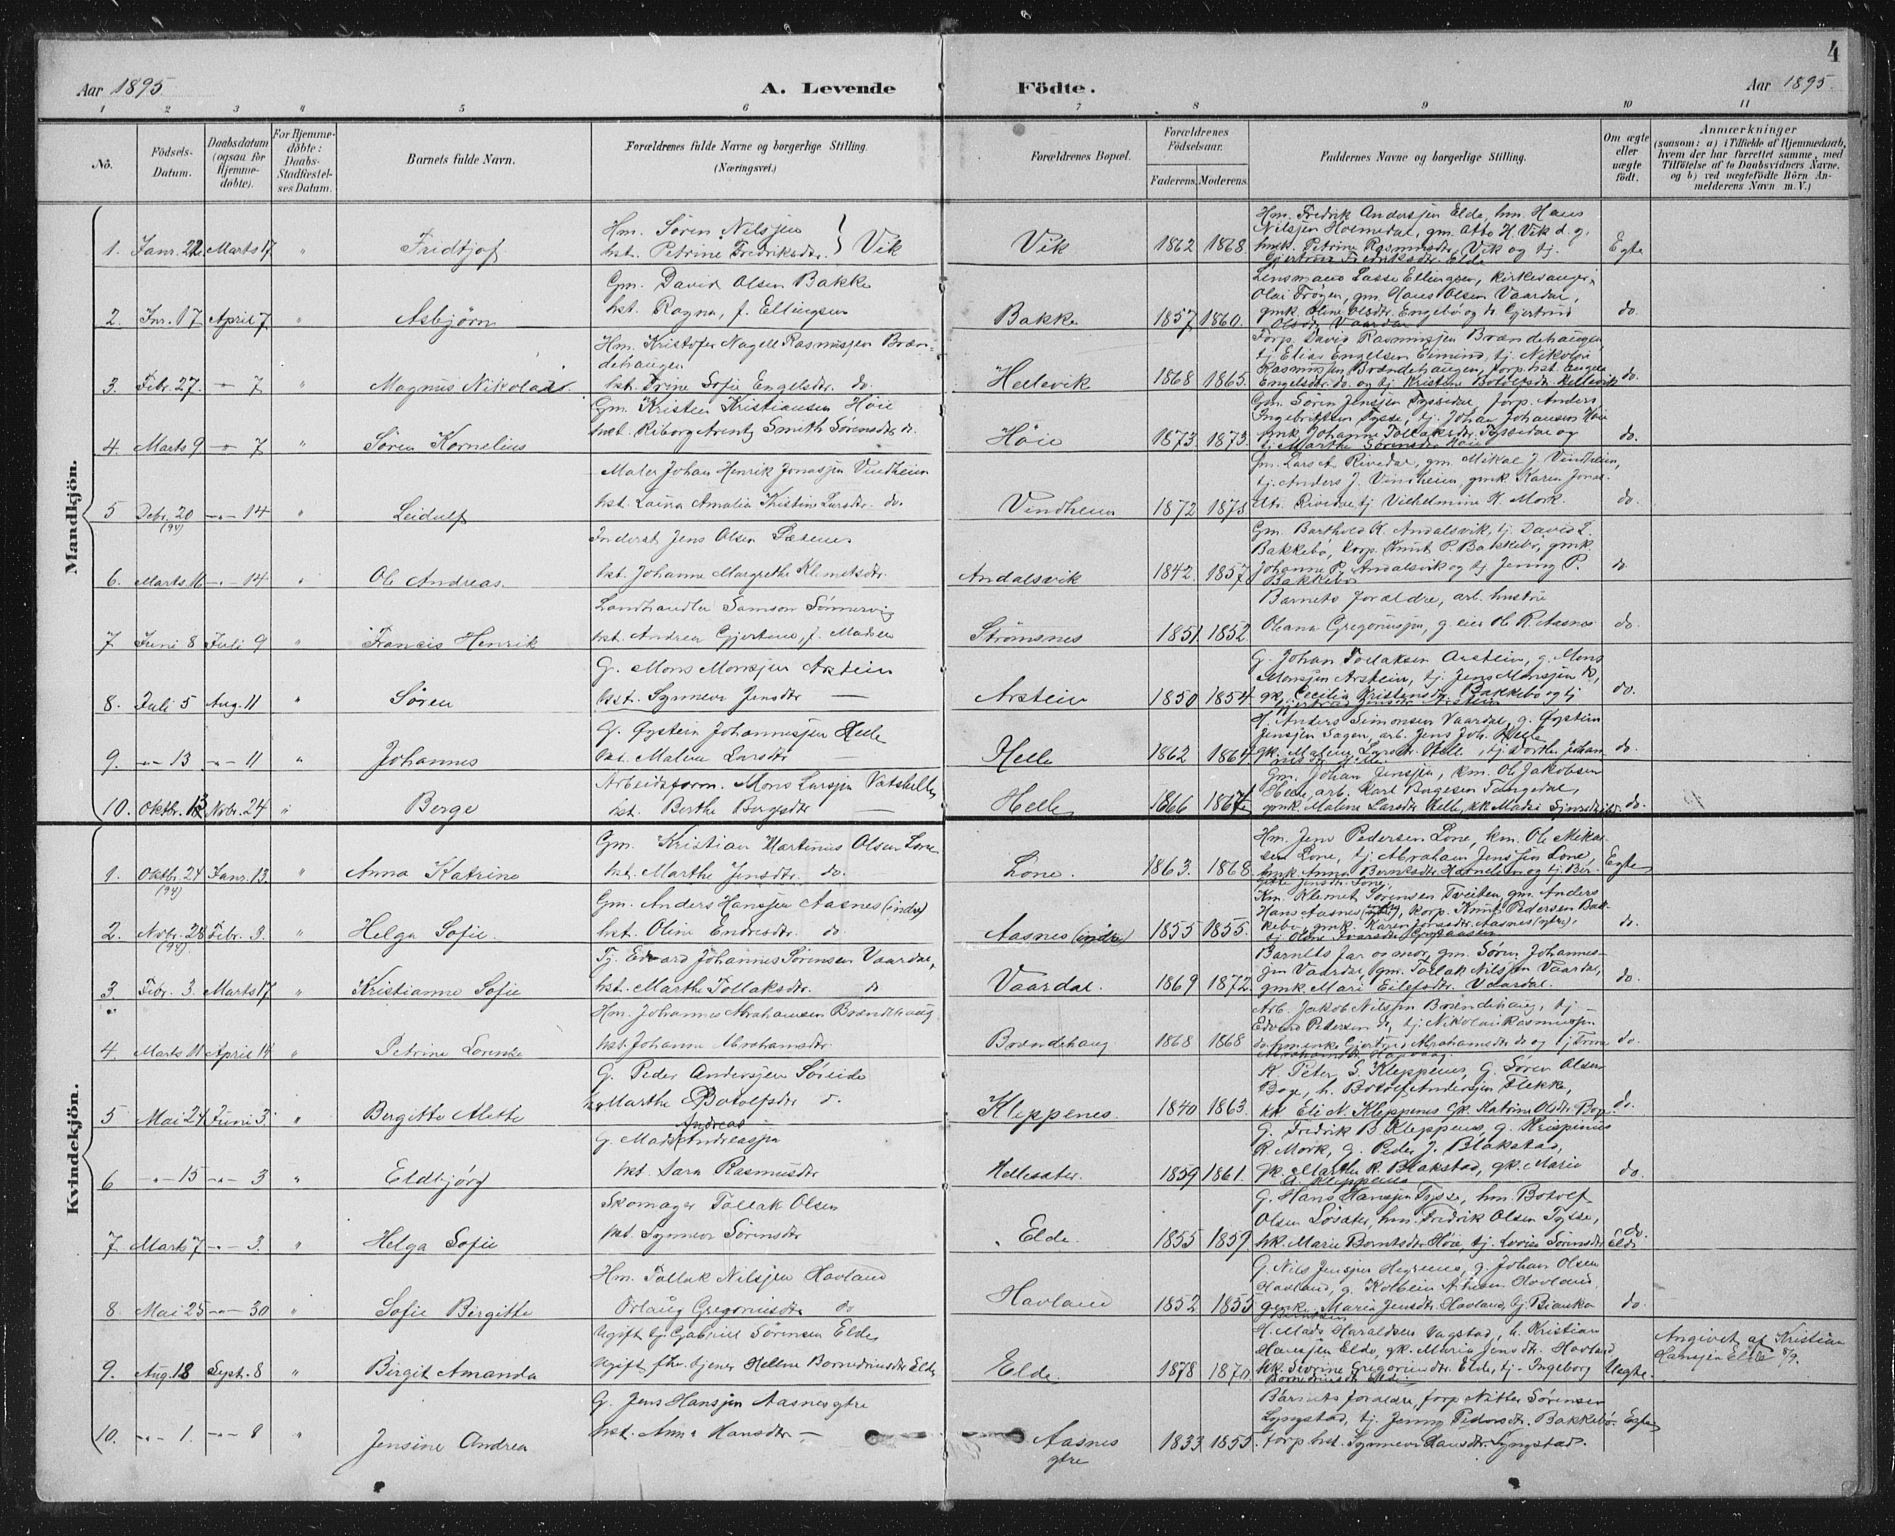 4
Aar 1895
A. Levende Födte.
Aar 1895.
1 2 3 " 5 6 7 8 9 10 11
No.
Födsels-
Datum.
Daabsdatum
(ogsaa for
Hjemme-
døbte).
For Hjemme-
døbte:
Daabs-
Stadfæstel-
ses Datum.
Barnets fulde Navn.
Forældrenes fulde Navne og borgerlige Stilling.
(Næringsvei.)
Forældrenes Bopæl.
Forældrenes
Fødselsaar.
Faderens. Moderens.
Faddernes Navne og borgerlige Stilling.
Om ægte
eller
uægte
født.
Anmærkninger
(saasom: a) i Tilfælde af Hjemmedaab,
hvem der har forrettet samme, med
Tilføielse af to Daabsvidners Navne.
og b) ved uægtefødte Börn An-
melderens Navn m. V.)
Mandkjön.
1. Janr. 22 Marts 17 " Fredtjof
Hm. Søren Nilsjen
hst. Petrine Fredriksdtr. } Vik
Vik 1862 1868
Hm. Fredrik Andersjen Elde, hm. Hans
Nilsjen Holmedal, gm. Otto H. Vik d. g.
hmk. Petrine Rasmusdtr. Vik og tj.
Gjertrud Fredriksdtr. Elde
Egte
2. Jnr. 17 April 7 " Asbjørn
Gm. David Olsen Bakke
hst. Ragna, f. Ellingsen
Bakke 1857 1860.
Lensmand Lasse Ellingsen, kirkesanger
Olai Frøyen, gm. Hans Olsen Vaardal,
gmk. Oline Olsdtr. Engebø og Gjertrud
Olsdtr. Vaardal
do
3. Febr. 27. -"- 7 " Magnus Nikolai
Hm. Kristofer Nagell Rasmusjen Bræn-
dehaugen
hst. Trine Sofie Engelsdtr. do.
Hellevik 1868 1865.
Forp. David Rasmusjen Brændehaugen,
tj. Elias Engelsen Espeland, tj. Nikolai
Rasmusjen Brændehaugen, forp. hst.
Engelsdtr. do. og tj. Kristine Botolfsdtr. Hellevik
do.
4. Marts 9 -"- 7 " Søren Kornelius
Gm. Kristen Kristiansen Høie
hst. Riborg Arentz Smith Sørensdtr. do.
Høie 1873 1873.
Gm. Søren Jensjen Tyssedal, forp. Anders
Ingebrigtsen Tysse, tj. Johan Johansen Høie
gmk. Johanne Tollaksdtr. Tyssedal og
tj. Marthe Sørensdtr. Høie
do.
5 Debr. 20 -"- 14 " Leidulf
(94)
Maler Johan Henrik Jonasjen Vindheim
hst. Laura Amalia Kristine Larsdtr. do.
Vindheim 1872 1875
Gm. Lars A. Rivedal, gm. Mikal J. Vindheim,
tj. Anders J. Vindheim, gmk. Karen Jonas-
dtr. Rivedal, tj. Vilhelmine K. Mork.
do.
6. Marts 16 -"- 14 " Ole Andreas.
Inderst Jens Olsen Sætenes
hst. Johanne Margrethe Klemetsdtr.
Andalsvik 1842. 1857
Gm. Barthold A. Andalsvik, tj. David L.
Bakkebø, korp. Knut P. Bakkebø, gmk.
Johanne P. Andalsvik og tj. Jenny P.
Bakkebø
do
7 Juni 8 Juli 9 " Francis Henrik
Landhandler Samson Sønnervig
hst. Andrea Gjertine, f. Madsen
Strømsnes 1851 1852
Barnets forældre, arb. hustru
Oliana Gregoriusjen, g. eier Ole R. Aasnes
do.
8. Juli 5 Aug. 11 " Søren
G. Mons Monsjen Arstein
hst. Synneva Jensdtr. —
Arstein 1850 1854
G. Johan Tollaksen Arstein, g. Mons
Monsjen Arstein, tj. Jens Monsjen do,
gk. Cecilia Kristensdtr. Bakkebø og tj.
Gjertrud Jensdtr. Arstein
do.
9. -"- 13 -"- 11 " Johannes
G. Øystein Johannesjen Helle
hst. Malene Larsdtr —
Helle 1862 1864
H. Anders Simonsen Vaardal, g. Øystein
Jensjen Sagen, arb. Jens Joh. Helle
gk. Malene Larsdtr. Helle, tj. Dorthe Johan-
nesdtr. Helle
do.
10. Oktbr. 13 Novbr. 24 " Berge
Arbeidsform. Mons Larsjen Vatshelle
hst. Berthe Bergesdtr —
Helle 1866 1867
Gm. Johan Jensjen, km. Ole Jakobsen
Helle, arb. Karl Børgesen Tangedal,
gmk. Malene Larsdtr Helle, kk. Madsi
do.
Kvindekjön.
1. Oktbr. 24 Janr. 13. " Anna Katrine
(94)
Gm. Kristian Martinus Olsen Lone
hst. Marthe Jensdtr. do.
Lone. 1863. 1868
Hm. Jens Pedersen Lone, km. Ole Mikal-
sen Lone, tj. Abraham Jensjen Lone,
hmk. Anna Berntsdtr. Havnelen og tj. Ber-
gitte Jensdtr. Lone.
Egte
2. Novbr. 28 Febr. 3. " Helga Sofie.
(94)
Gm. Anders Hansjen Aasnes (indre)
hst. Oline Endresdtr. do
Aasnes (indre) 1855 1855.
Km. Klemet Sørensen Tveiten, gm. Anders
Hans Aasnes (ytre), korp. Knut Pedersen Bak-
kebø, gmk. Karen Jonsdtr. Aasnes (ytre),
tj. Oline Ivarsdtr.
do.
3. Febr. 3. Marts 17 " Kristianne Sofie
Tj. Edvard Johannes Sørensen Vaardal,
hst. Marthe Tollaksdtr. do
Vaardal. 1869 1872
Barnets far og mor, gm. Søren Johannes-
jen Vaardal, gm. Tollak Nilsjen Vaardal,
gmk Mari Eilefsdtr. Vaardal.
do.
4. Marts 11 April 14 " Petrine Lorentse
Hm. Johannes Abrahamsen Brændehaug
hst. Johanne Abrahamsdtr.
Brændehaug 1868 1868
Arb. Jakob Nilsjen Brændehaug, tj.
Edvard Pedersen do, tj. Nikolai Rasmusjen
do. hm.enke Gjertrud Abrahamsdtr. do og tj. Trine
Abrahamsdtr. Hagevaag
do.
5 Mai 24 Juni 3. " Bergitte Alette
G. Peder Andersjen Søreide
hst. Marthe Botolfsdtr do.
Kleppenes. 1840 1863.
K. Peter S. Kleppenes, G. Søren Olsen
Boge, h. Botolf Andersjen Flekke,
kk Eli N. Kleppenes Gk. Katrine Olsdtr. Boge.
do.
6 -"- 15 -"- 3 " Eldbjørg
Andreas
G. Mads Andreasjen
hst. Sara Rasmusdtr
Hellesæter. 1859 1861.
G. Fredrik B. Kleppenes, g. Krispinus
R. Mork, G. Peder J. Blakstad,
gk. Marthe R. Blakstad, gk. Marie
A. Kleppenes
do.
7 Marts 7 -"- 3. " Helga Sofie
Skomager Tollak Olsen
hst. Synneve Sørensdtr
Elde. 1855 1859
G. Hans Hansjen Tysse, hm. Botolf
Olsen Løsæter, hm. Fredrik Olsen Tysse,
hk. Marie Berntsdtr Høie, tj. Lovise Sørensdtr Elde
do.
8. Mai 25 -"- 30 " Sofie Birgitte
Hm. Tollak Nilsjen Havland
Orlaug Gregoriusdtr do
Havland 1852 1855
G. Nils Jensjen Hegrenes, g. Johan Olsen
Havland, g. Kolbein Havland.
gmk. Marie Jensdtr. Havland, tj. Bianka
do.
9. Aug. 18 Sept. 8 " Birgit Amanda
Ugift tj. Gabriel Sørensen Elde
Ugift fhv. tjener Helene Bernedriusdtr Elde
Elde 1878 1870
H. Mads Haraldsen Vagstad, h. Kristian
Hansjen Elde, gk. Maria Jensdtr. Havland,
hk. Severine Gregoriusdtr. Elde, tj. Ingeborg
Bernedriusdtr. Elde.
Uegte.
Angivet af Kristian
Hansjen Elde 8/9.
10. -"- 1. -"- 8 " Jensine Andrea
G. Jens Hansjen Aasnes ytre
hst. Anna Hansdtr —
Aasnes
ytre
1833 1855.
Barnets forældre, forp. Nitter Sørensen
Lyngstad, tj. Jenny Pedersdtr. Bakkebø
forp. hst. Synneve Hansdtr. Lyngstad.
Egte